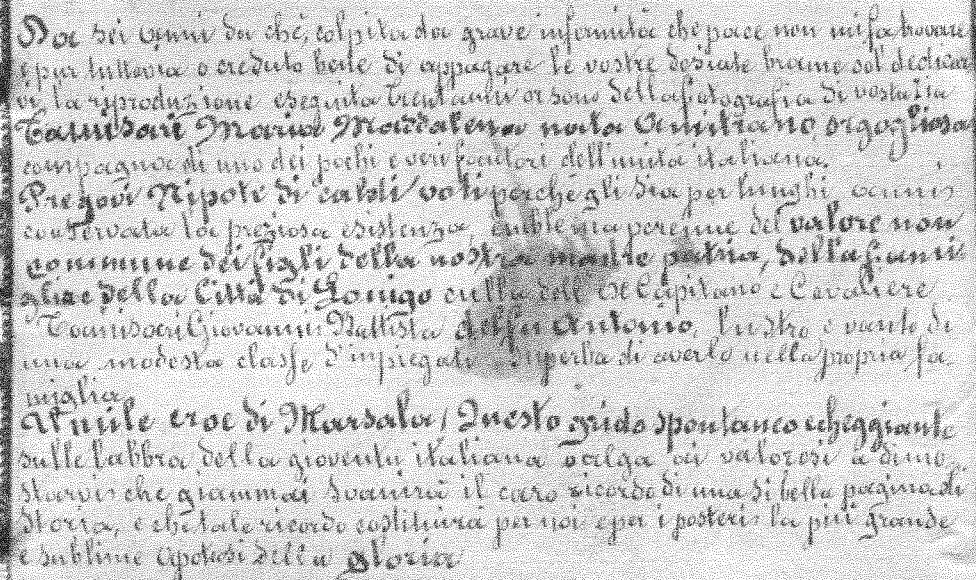 Da sei anni da che, colpita da grave infermità che pace non mi fa trovare
e pur tuttavia o creduto bene di appagare le vostre desiate brame col dedicar
vi la riproduzione eseguita trent'anni or sono della fotografia di vostra zia
Tamisari Maria Maddalena nata Anitiano orgogliosa
compagna di uno dei pochi e veri fautori dell'unità italiana.
Pregovi Nipote di caldi voti perchè gli sia per lunghi anni
conservata la preziosa esistenza, emblema perenne del valore non
commune dei figli della nostra madre patria, della fami-
glia e della Città di Lonigo culla dell' ex Capitano e Cavaliere
Tamisari Giovanni Battista della Antonio, lustro e vanto di
una modesta classe d'impiegati superba di averlo nella propria fa
miglia.
Umile eroe di Marsala! Questo grido spontaneo echeggiante
sulle labbra della gioventù italiana valga ai valorosi a dimo
starvi che giammai svanirà il caro ricordo di una sì bella pagina di
Storia, e che tale ricordo costituirà per noi e per i posteri la più grande
e sublime apoteosi della gloria